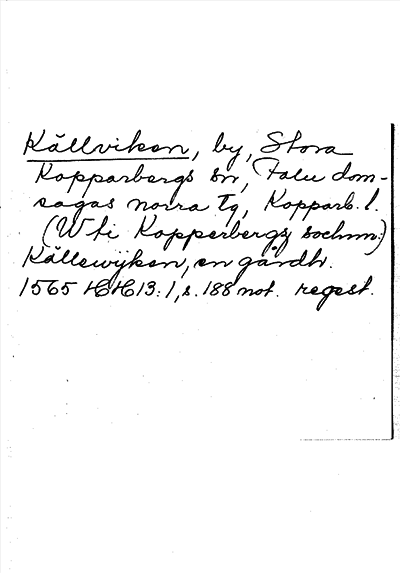 Källviken, by, Stora
Kopparbergs sn, Falu dom-
sagas norra tg, Kopparb. l.
(W hi Kopperbergz sochnn:)
Källewijken, en gårdh.
1565 HH 13:1, s. 188 not. regest.